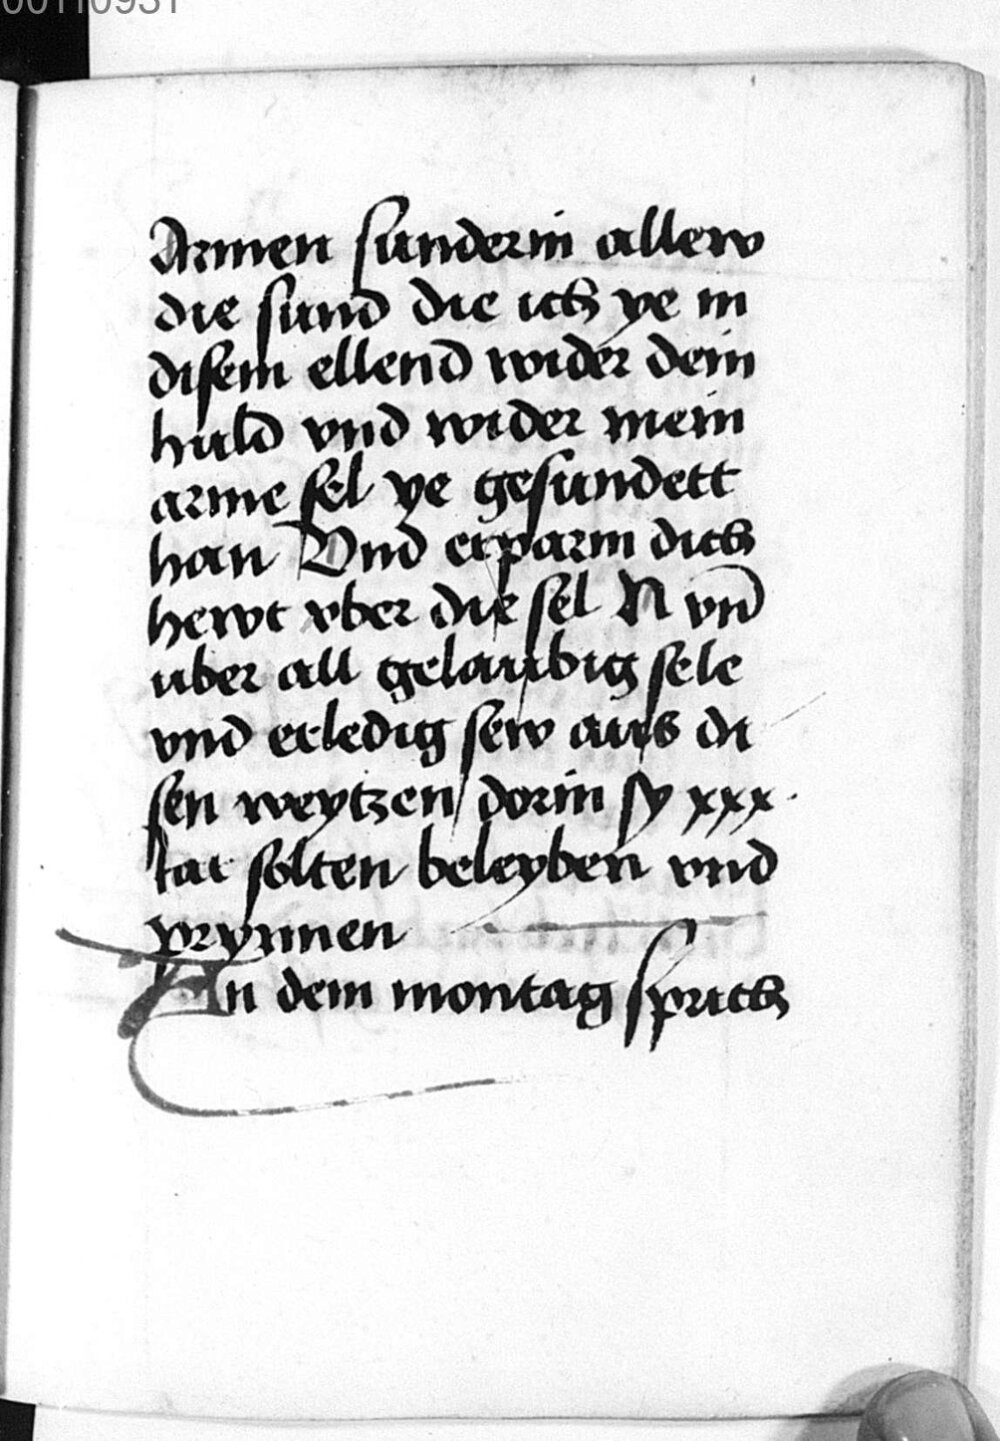 00110931
Armen sunderin allew
die sund die ich ye in
disem ellend wider dein
huld vnd wider mein
arme sel ye gesundett
han Vnd erparm dich
hewt vber die sel N vnd̄
uber all gelaubig sele
vnd erledig sew aus di
sen weytzen dorin sy xxx
tat solten beleyben vnd
prynnen
An dem montag sprich